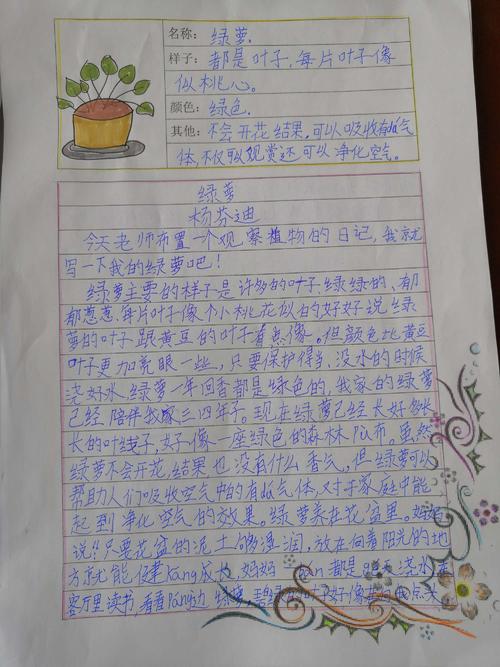 名称：绿萝.
样子：都是叶子，每片叶子像
似桃心。
颜色：绿色.
其他：不会开花结果，可以吸收有dú气
体，不仅可以观赏还可以净化空气。
绿萝
杨芬迪
今天老师布置一个观察植物的日记，我就
写一下我的绿萝吧！
绿萝主要的样子是许多的叶子，绿绿的、郁
郁葱葱.每片叶子像个小桃花似的好好说绿
萝的叶子跟黄豆的叶子有点像。但颜色比黄豆
叶子更加亮眼一些，只要保护得当、没水的时候
浇好水，绿萝一年四香都是绿色的，我家的绿萝
已经陪伴我家三四年了。现在绿萝已经长好多长
长的叶线子，好像一座绿色的森林队布。虽然
绿萝不会开花，结果也没有什么香气，但绿萝可以
帮助人们吸收空气中的有dú气体，对于家庭中能
起到净化空气的效果。绿萝养在花盆里。妈妈
说!!只要花盆的泥土够湿润，放在向着阳光的地
方就能健kang成长，妈妈 都是 浇水在
客厅里读书，看看Páng边 绿萝，碧绿的叶子好像在向我点头